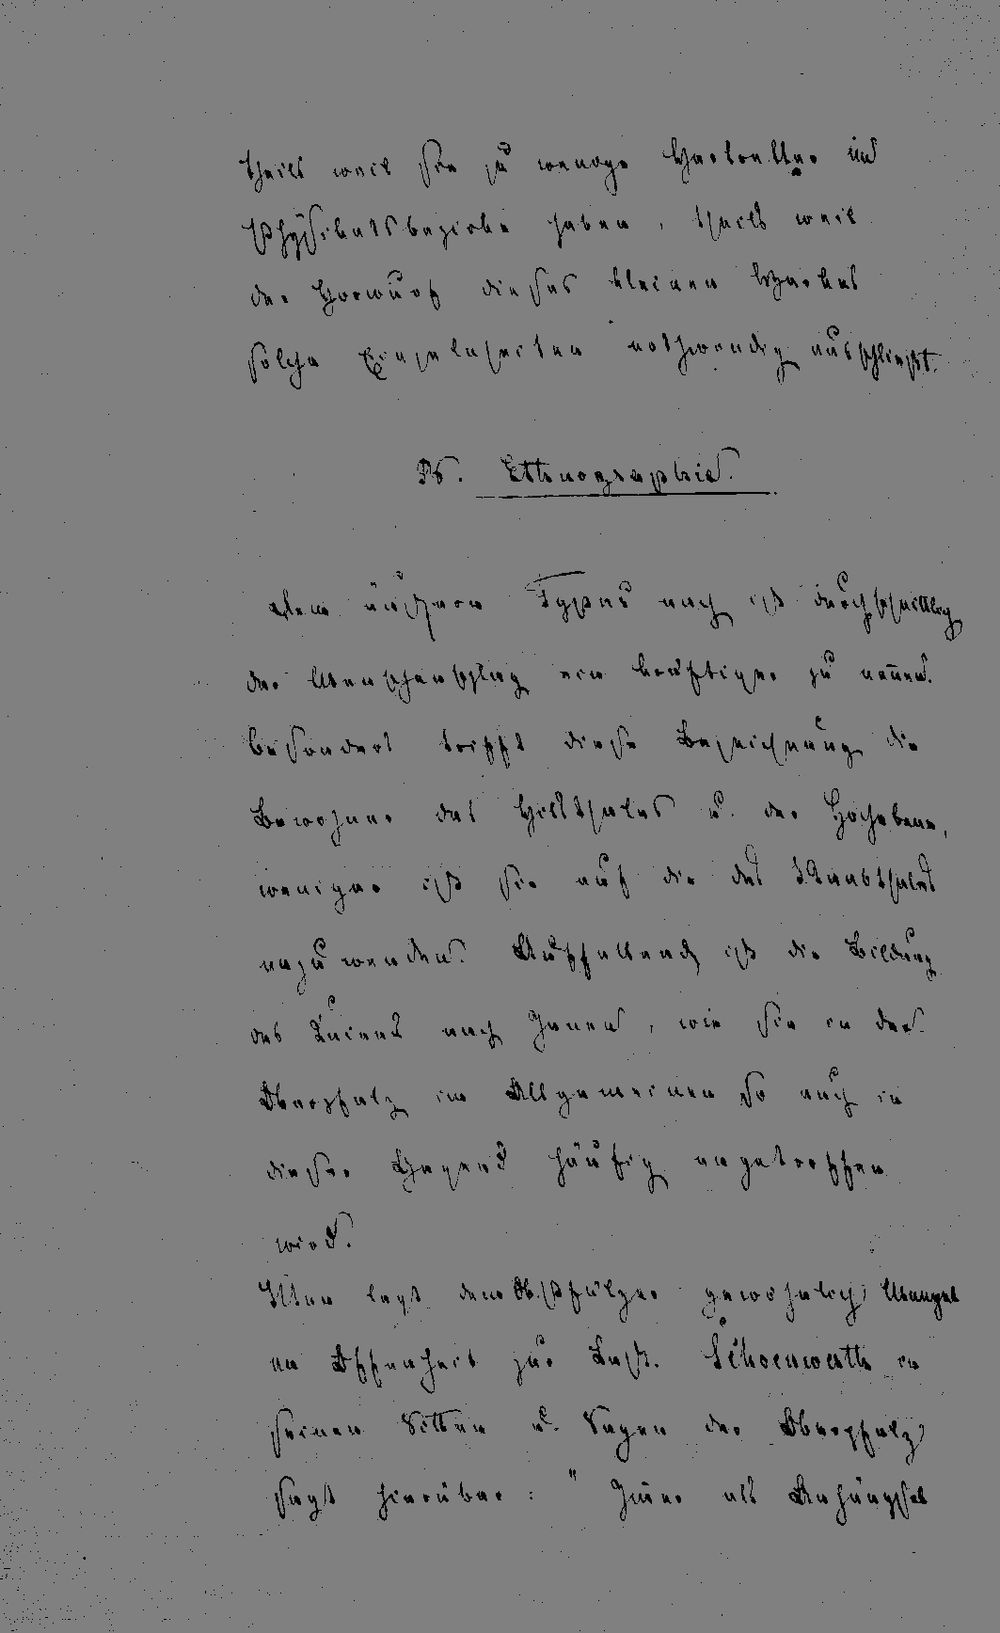 theils weil sie zu wenige Vertreter im
Physikatsbezirke haben, theils weil
der Vorwurf dieses kleinen Werkes
solche Einzelnheiten nothwendig ausschließt.
B. Ethnographie.
Dem äußern Typus nach ist durchschnittlich
der Menschenschlag ein kräftiger zu nennen.
besonders trifft diese Bezeichnung die
Bewohner des Vilsthales u. der Hochebene,
weniger ist sie auf die des Naabthales
anzuwenden. Auffallend ist die Bildung
des Kniees nach Innen, wie sie in der
Oberpfalz im Allgemeinen so auch in
dieser Gegend häufig angetroffen
wird.
Man legt dem Ob.Pfälzer gewöhnlich Mangel
an Offenheit zur Last. Schoenwerth in
seinen Sitten u. Sagen der Oberpfalz
sagt hierüber: "Immer als Anhängsel